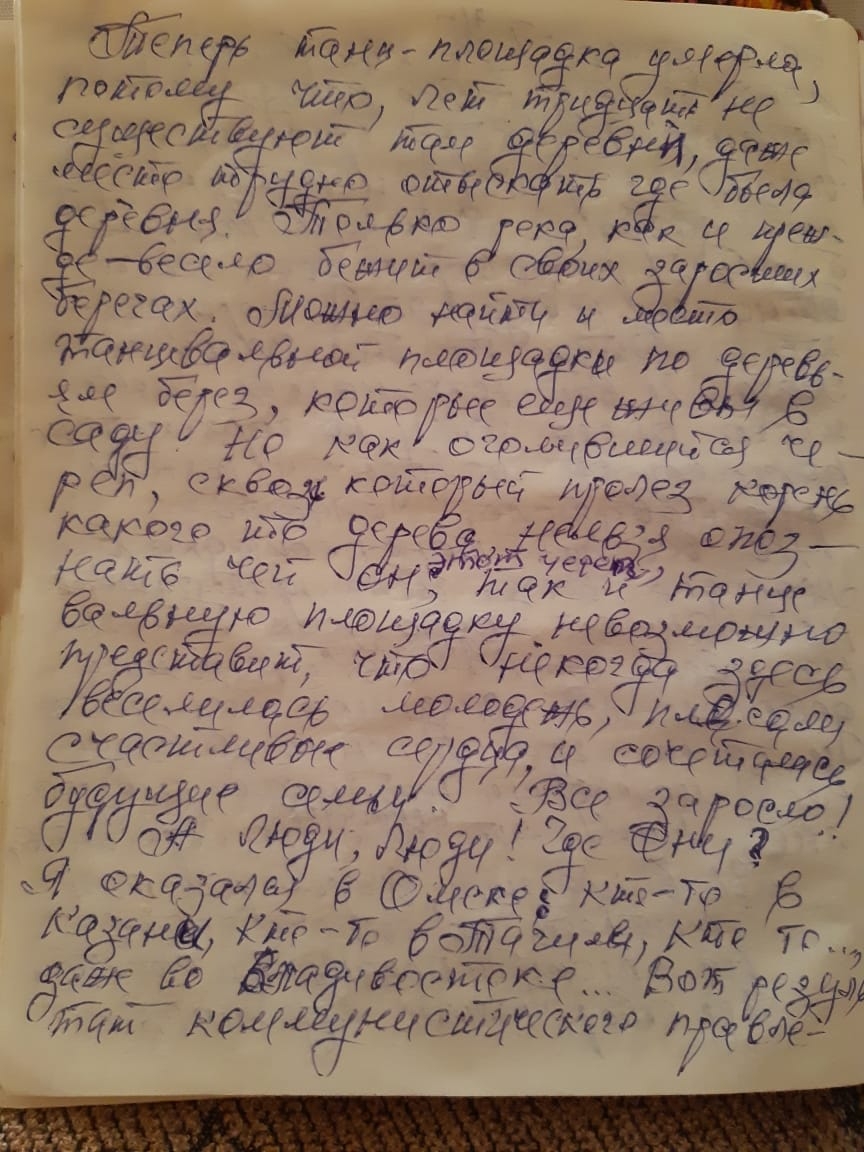 Теперь танц-площадка умерла,
потому что, лет тридцать не
существуют там деревни, даже
место трудно отыскать где была
деревня. Только река, как и преж-
де-весело бежит в своих заросших
берегах. Можно найти и место
танцевальной площадки по деревь-
ям берез, которые еще живы в
саду. Но как оголившийся че-
реп, сквозь который пролез корень
какого то дерева нельзя опоз-
нать чей он, этот череп, так и танце
вальную площадку невозможно
представит, что некогда здесь
веселилась молодежь, плясали
счастливые сердца, и сочетались
будущие семьи. Все заросло!
А люди, люди! Где они?
Я оказался в Омске, кто-то в
Казани, кто-то в, кто то...,
даж во Владивостоке... Вот резуль
тат коммунистического правле-